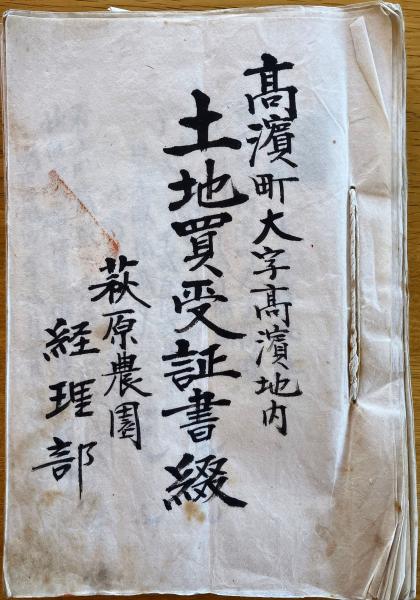 髙濱町大字髙濱地内
土地買受証書綴
萩原農園
経理部